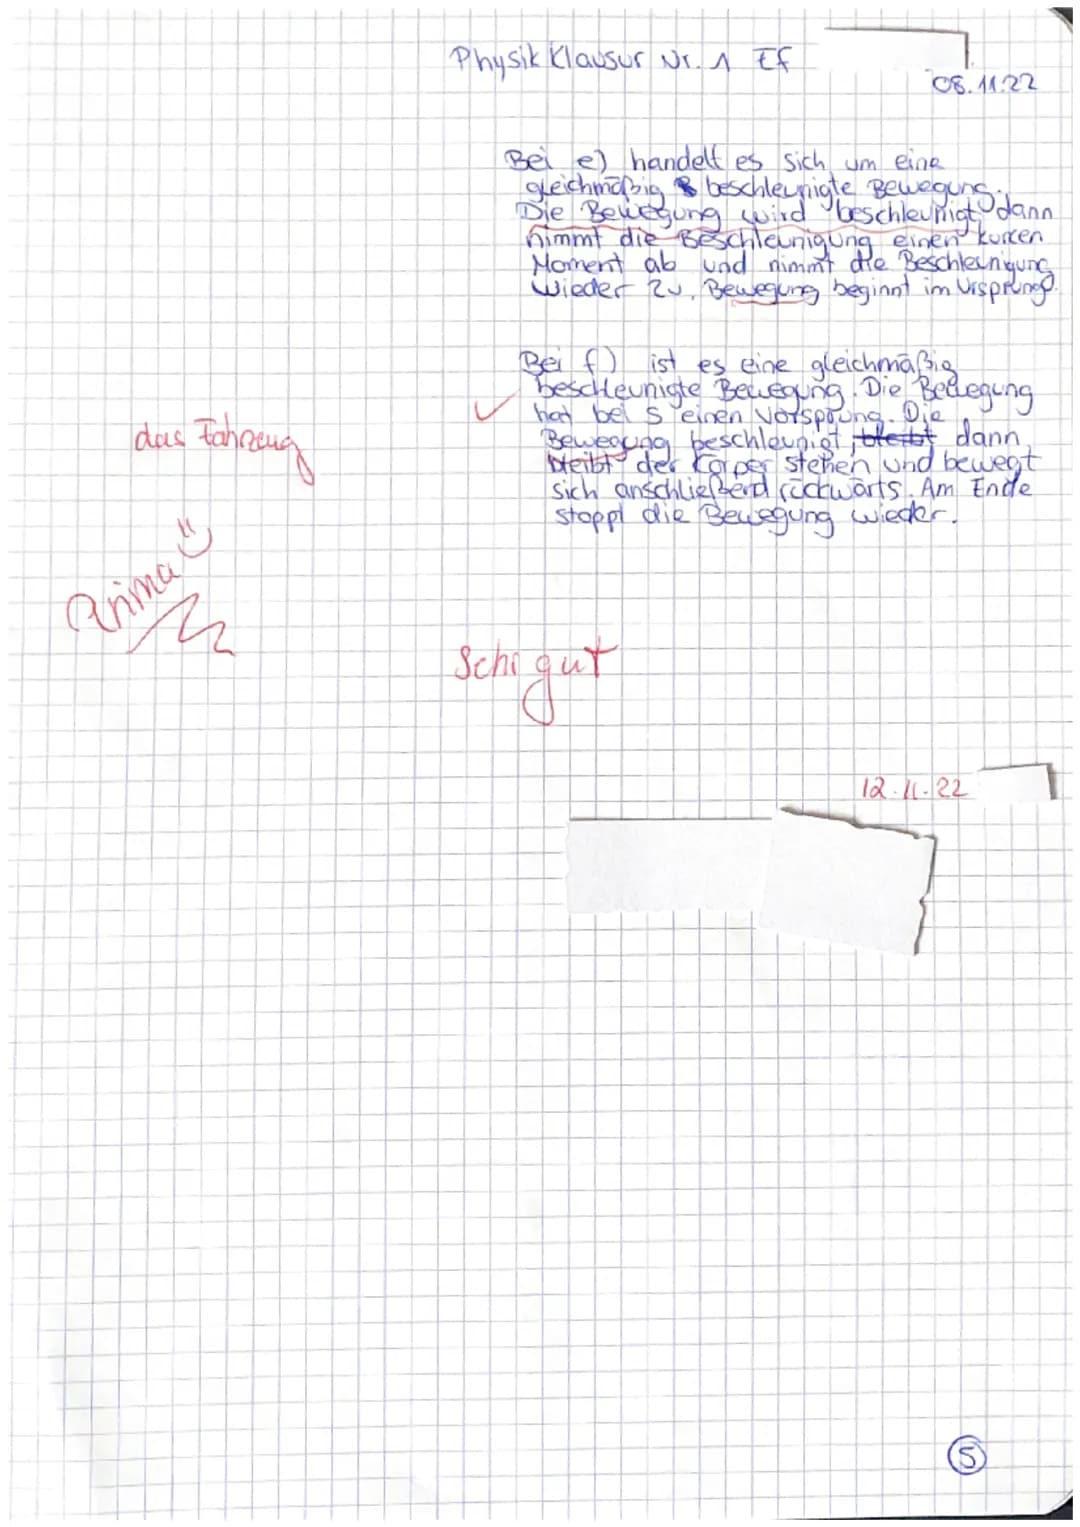 Physik Klausur Nr. 1 Ef
08.11.22
Bei e) handelt es sich um eine
gleichmäßig beschleunigte Bewegung.
Die Bewegung wird beschleunigt, dann
nimmt die Beschleunigung einen kurzen
Moment ab und nimmt die Beschleunigung
wieder zu. Bewegung beginnt im Ursprung.
Bei f) ist es eine gleichmäßig
beschleunigte Bewegung. Die Bewegung
hat bei s einen Vorsprung. Die
das Fahrzeug
Bewegung beschleunigt, bleibt dann
bleibt der Körper stehen und bewegt
sich anschließend rückwärts. Am Ende
stoppt die Bewegung wieder.
Prima
Sehr gut
12.11.22
5